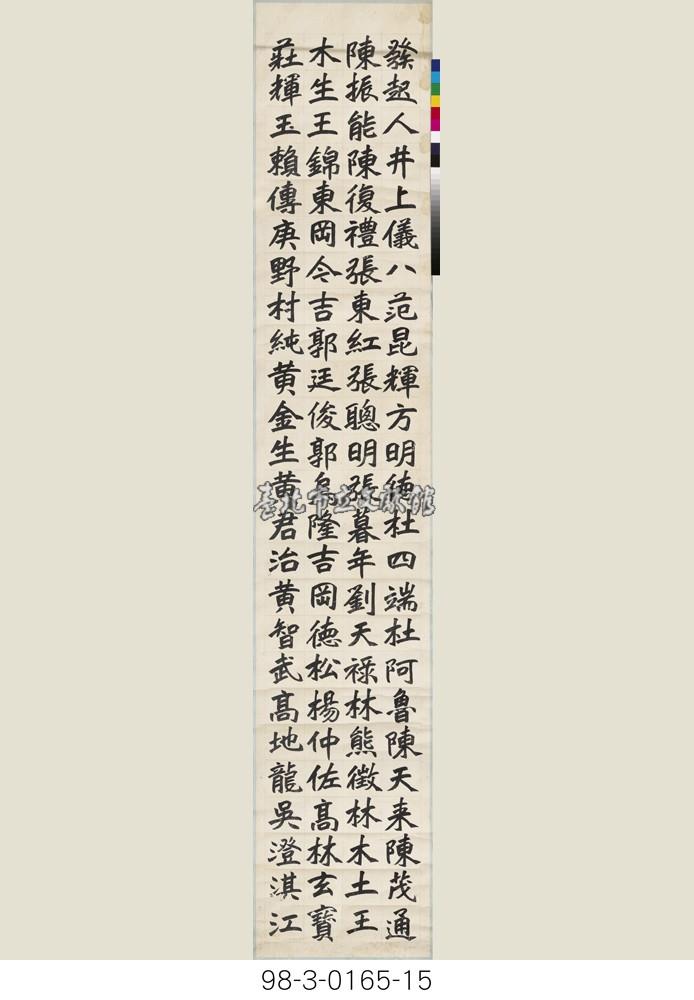 發起人井上儀八范昆輝方明德杜四端杜阿魯陳天来陳茂通
陳振能陳復禮張東紅張聰明張暮年劉天祿林熊徵林木土王
木生王錦東岡今吉郭廷俊郭烏隆吉岡德松楊仲佐高林玄寶
莊輝玉賴傳庚野村純黄金生黄君治黄智武高地龍吳澄淇江
臺北市立文獻館
98-3-0165-15